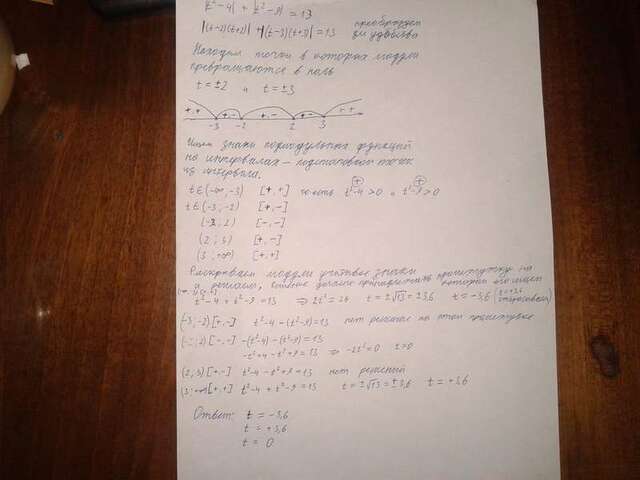 |t²-4| + |t²-9| = 13
|(t-2)(t+2)| + |(t-3)(t+3)| = 13 преобразуем для удобства
Находим точки в которых модули
превращаются в ноль
t = ±2 и t = ±3
++ +- +- +- ++
-3 -2 2 3
Ищем знаки подмодульных функций
на интервалах – подстановкой точек
из интервала.
t∈(-∞,-3) [+,+] то есть t²-4>0 и t²-9>0
t∈(-3;-2) [+,-]
(-2;2) [-,-]
(2;3) [+,-]
(3;+∞) [+,+]
Раскрываем модули учитывая знаки
и решаем, решение должно принадлежать промежутку на котором его ищем
t²-4+t²-9=13 ⇒ 2t²=26 t=±√13=±3,6 t=-3,6 (t=+3,6
(-3;-2)[+,-] t²-4-(t²-9)=13 нет решений на этом промежутке
(-2;2)[-,-] -(t²-4)-(t²-9)=13
-t²+4-t²+9=13 ⇒ -2t²=0 t=0
(2;3)[+,-] t²-4-t²+9=13 нет решений
(3;+∞)[+,+] t²-4+t²-9=13 t=±√13=±3,6 t=+3,6
Ответ: t = -3,6
t = +3,6
t = 0